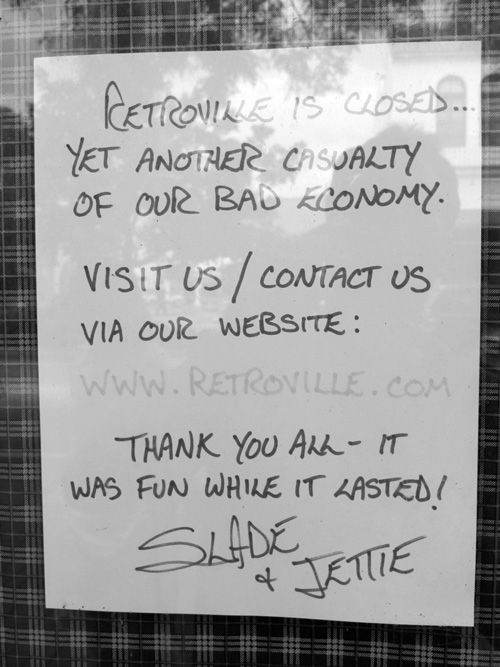 RETROVILLE IS CLOSED...
YET ANOTHER CASUALTY
OF OUR BAD ECONOMY.
VISIT US / CONTACT US
VIA OUR WEBSITE:
WWW.RETROVILLE.COM
THANK YOU ALL - IT
WAS FUN WHILE IT LASTED!
SLADE
& JETTIE